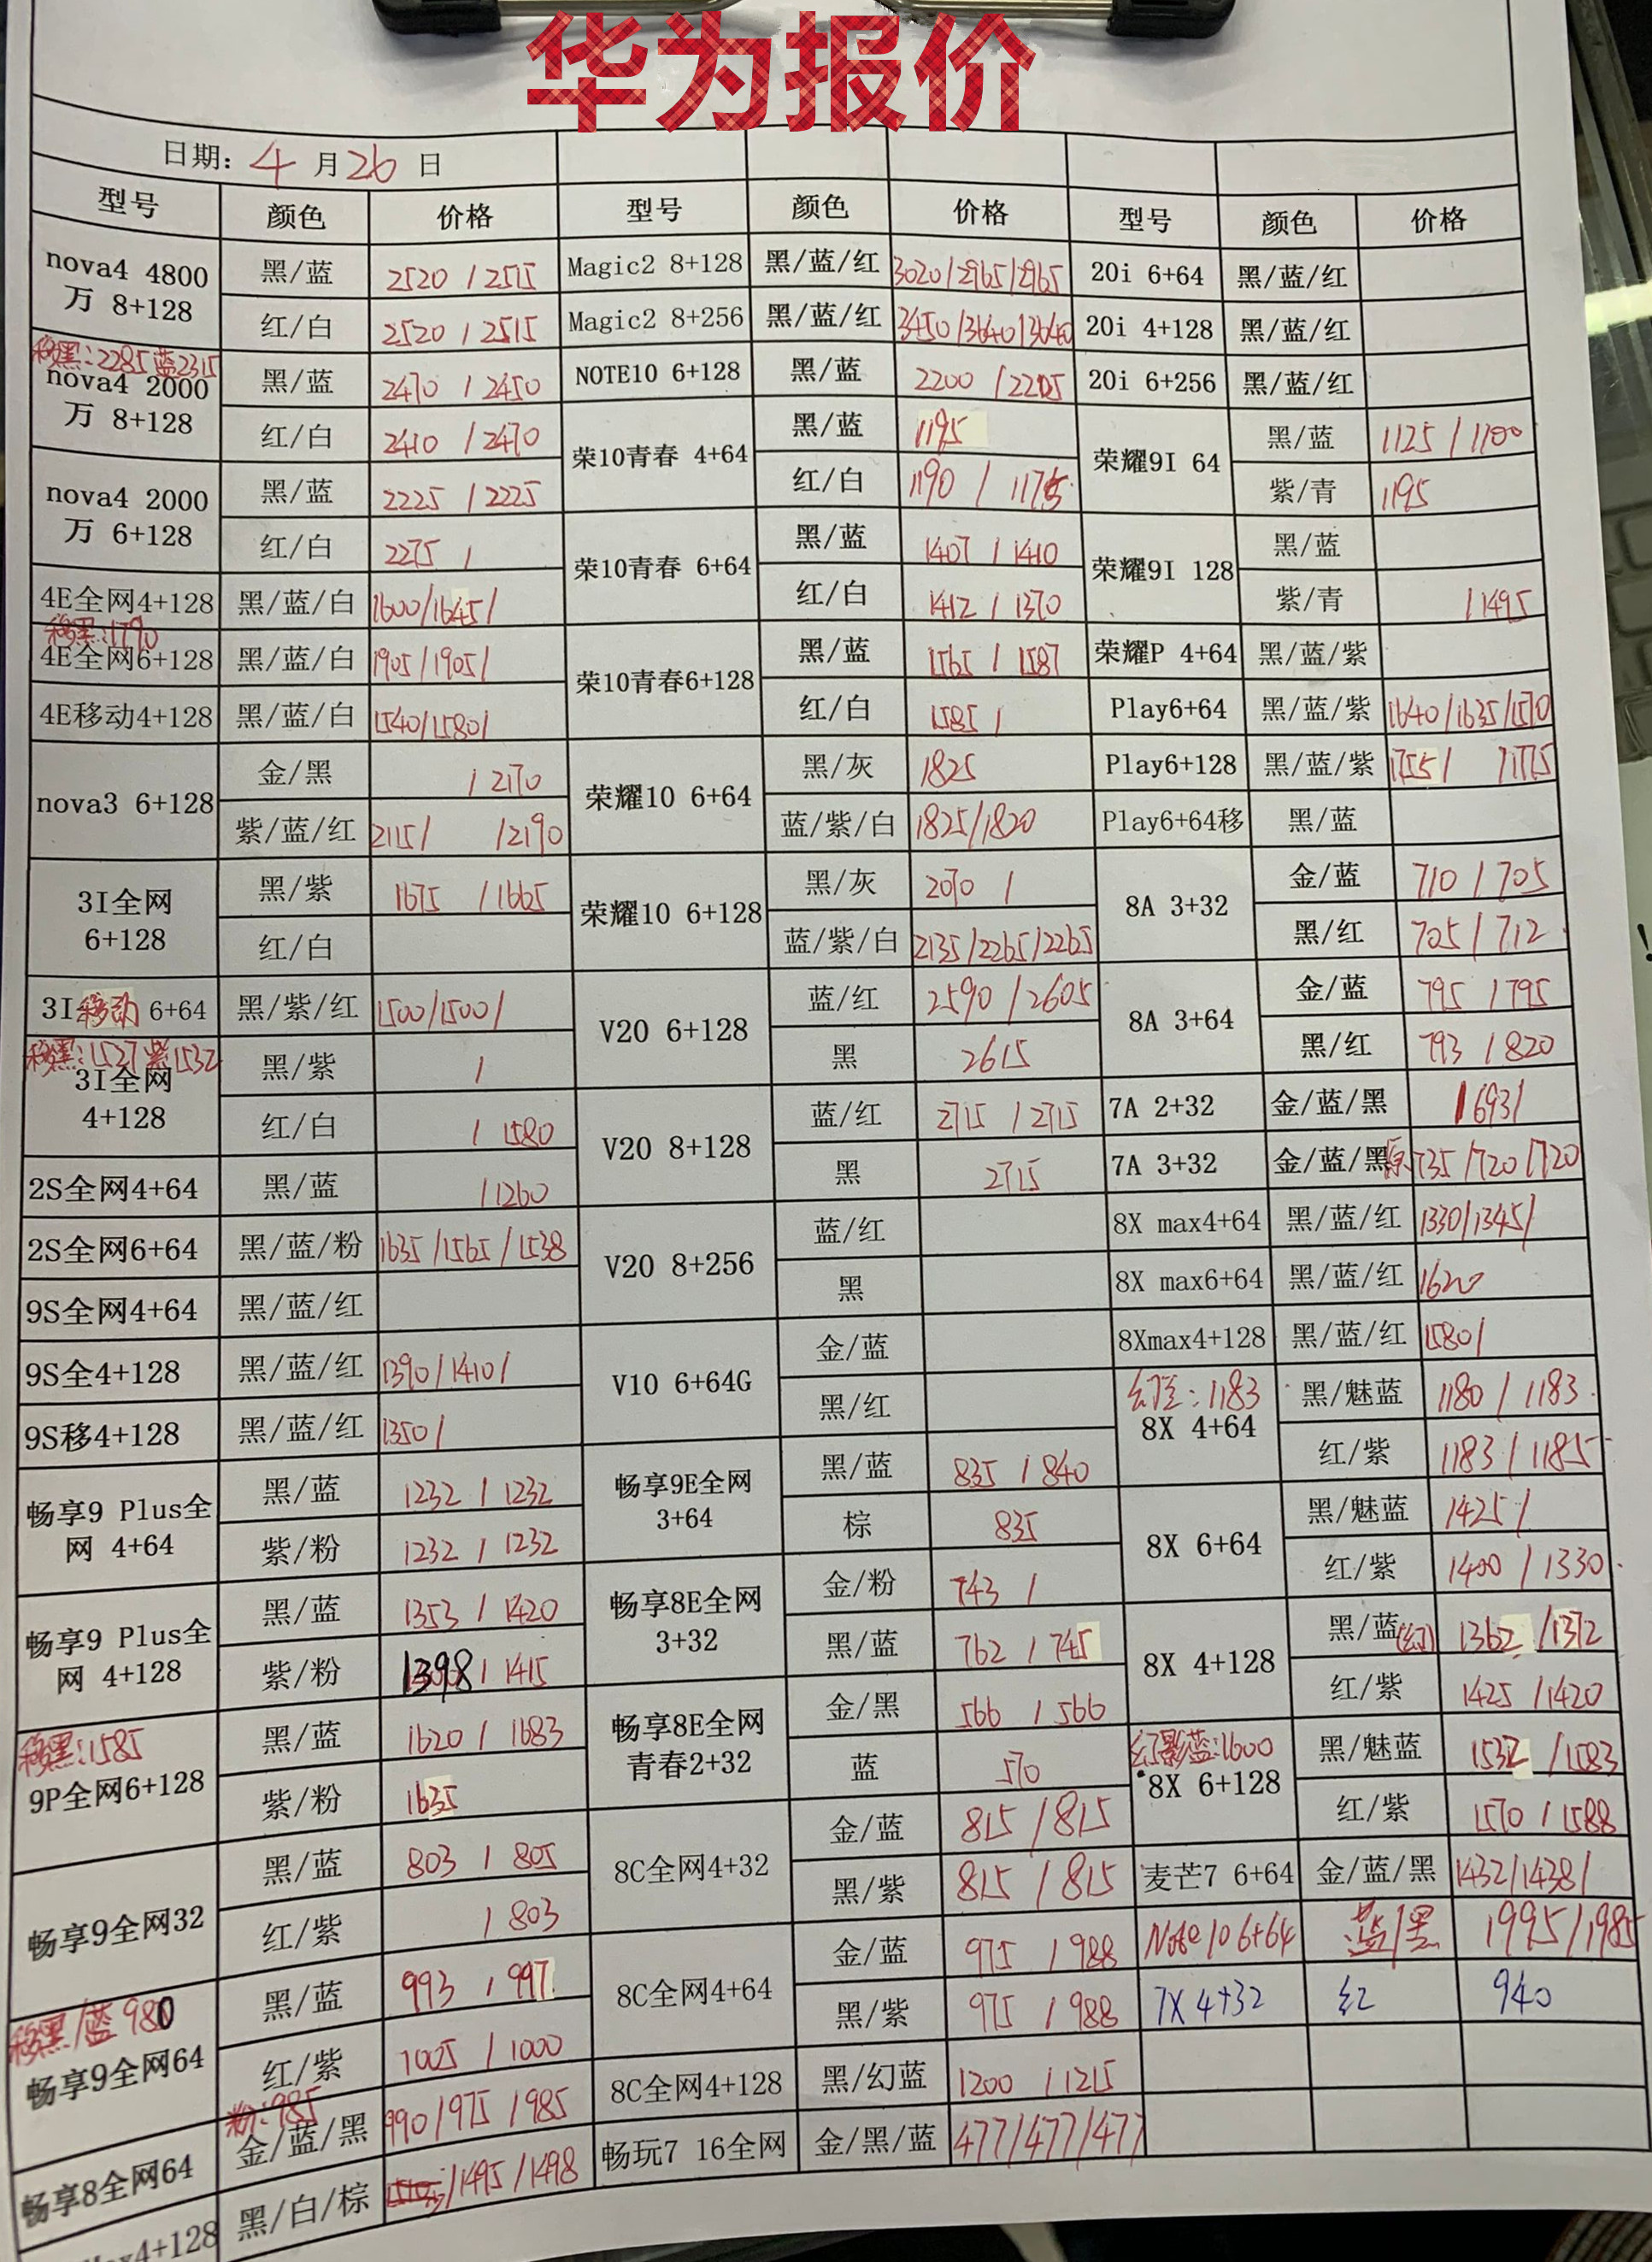 华为报价
日期: 4 月 26 日
型号 颜色 价格 型号 颜色 价格 型号 颜色 价格
nova4 4800万 8+128 黑/蓝 2520 / 2515 Magic2 8+128 黑/蓝/红 3020/2965/2965 20i 6+64 黑/蓝/红
红/白 2520 / 2515 Magic2 8+256 黑/蓝/红 3450/3640/3640 20i 4+128 黑/蓝/红
移黑:2285 蓝2315
nova4 2000万 8+128 黑/蓝 2470 / 2450 NOTE10 6+128 黑/蓝 2200 / 20i 6+256 黑/蓝/红
红/白 2410 / 2470 荣10青春 4+64 黑/蓝 1195 荣耀9I 64 黑/蓝 1125 / 1100
nova4 2000万 6+128 黑/蓝 2225 / 2225 红/白 1190 / 1175 紫/青 1195
红/白 2275 / 荣10青春 6+64 黑/蓝 1407 / 1410 荣耀9I 128 黑/蓝
4E全网4+128 黑/蓝/白 1600/1645/ 红/白 1412 / 1370 紫/青 / 1495
移黑:1790
4E全网6+128 黑/蓝/白 1905/1905/ 荣10青春6+128 黑/蓝 1565 / 1587 荣耀P 4+64 黑/蓝/紫
4E移动4+128 黑/蓝/白 1540/1580/ 红/白 1585 / Play6+64 黑/蓝/紫 1640/1635/1570
nova3 6+128 金/黑 / 2170 荣耀10 6+64 黑/灰 1825 Play6+128 黑/蓝/紫 1755/ /1775
紫/蓝/红 2115/ /2190 蓝/紫/白 1825/1820 Play6+64移 黑/蓝
3I全网 6+128 黑/紫 1675 / 1665 荣耀10 6+128 黑/灰 2070 / 8A 3+32 金/蓝 710 / 705
红/白 蓝/紫/白 2135/2265/2265 黑/红 705 / 712
3I移动 6+64 黑/紫/红 1500/1500/ V20 6+128 蓝/红 2590 / 2605 8A 3+64 金/蓝 795 / 795
移黑:1527 紫1532
3I全网 4+128 黑/紫 / 黑 2615 黑/红 793 / 820
红/白 / 1580 V20 8+128 蓝/红 2715 / 2715 7A 2+32 金/蓝/黑 / 693/
2S全网4+64 黑/蓝 / 1260 黑 2715 7A 3+32 金/蓝/黑 735/720/720
2S全网6+64 黑/蓝/粉 1635/1565/1538 V20 8+256 蓝/红 8X max4+64 黑/蓝/红 1330/1345/
9S全网4+64 黑/蓝/红 黑 8X max6+64 黑/蓝/红 1620
9S全4+128 黑/蓝/红 1390/1410/ V10 6+64G 金/蓝 8Xmax4+128 黑/蓝/红 1580/
9S移4+128 黑/蓝/红 1350/ 黑/红 :1183 8X 4+64 黑/魅蓝 1180 / 1183
畅享9 Plus全网 4+64 黑/蓝 1232 / 1232 畅享9E全网 3+64 黑/蓝 835 / 840 红/紫 1183 / 1185
紫/粉 1232 / 1232 棕 835 8X 6+64 黑/魅蓝 1425 /
畅享9 Plus全网 4+128 黑/蓝 1353 / 1420 畅享8E全网 3+32 金/粉 743 / 红/紫 1400 / 1330
紫/粉 1398 / 1415 黑/蓝 762 / 745 8X 4+128 黑/蓝(幻) 1362 / 1372
移黑:1585
9P全网6+128 黑/蓝 1620 / 1683 畅享8E全网青春2+32 金/黑 566 / 566 红/紫 1425 / 1420
紫/粉 1635 蓝 570 幻影蓝:1600 8X 6+128 黑/魅蓝 1532 / 1583
畅享9全网32 黑/蓝 803 / 805 8C全网4+32 金/蓝 815 / 815 红/紫 1570 / 1588
红/紫 / 803 黑/紫 815 / 815 麦芒7 6+64 金/蓝/黑 1432/1438/
移黑/蓝 980
畅享9全网64 黑/蓝 993 / 997 8C全网4+64 金/蓝 975 / 988 Note10 6+64 蓝/黑 1995/1985
红/紫 1005 / 1000 黑/紫 975 / 988 7X 4+32 红 940
粉:985
畅享8全网64 金/蓝/黑 990/975/985 8C全网4+128 黑/幻蓝 1200 / 1215
4+128 黑/白/棕 /1495/1498 畅玩7 16全网 金/黑/蓝 477/477/477